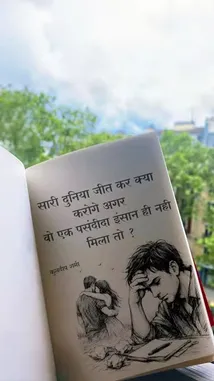 सारी दुनिया जीत कर क्या
करोगे अगर
वो एक पसंदीदा इंसान ही नही
मिला तो ?